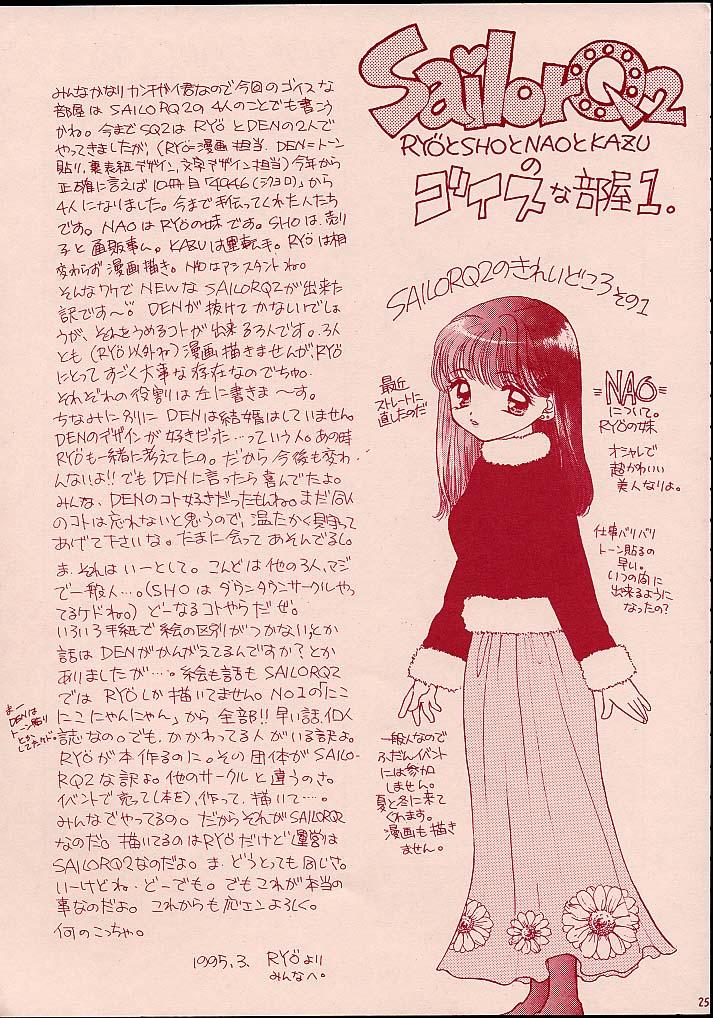 SailorQ2
RYÖとSHOとNAOとKAZU
の
ゴイスな部屋1。
みんなかなりカンチガイ君なので今回のゴイスな
部屋はSAILORQ2の4人のことでも書こう
かね。今までSQ2はRYÖとDENの2人で
やってきましたが、(RYÖ=漫画担当、DEN=トーン
貼り、裏表紙デザイン、文字デザイン担当)今年から
正確に言えば10冊目「4946(ジクヨロ)」から
4人になりました。今まで手伝ってくれた人たち
です。NAOはRYÖの妹です。SHOは、売り
子と通販事ム。KAZUは運転手。RYÖは相
変わらず漫画描き。NAOはアシスタントね。
そんなワケでNEWなSAILORQ2が出来た
訳です〜。DENが抜けてかないでしょ
うが、それをうめるコトが出来る3人です。3人
とも(RYÖ以外ね)漫画描きませんがRYÖ
にとってすごく大事な存在なのでちゅ。
それぞれの役割りは左に書きま〜す。
ちなみに別にDENは結婚はしていません。
DENのデザインが好きだった…っていう人。あの時
RYÖも一緒に考えてたの。だから今後も変わ
んないよ!!でもDENに言ったら喜んでたよ。
みんな、DENのコト好きだったもんね。まだDEN
のコトは忘れないと思うので、温たかく見守って
あげて下さいな。たまに会ってあそんでるし。
ま、それはいーとして。こんどは他の3人、マジ
で一般人…。(SHOはダウンタウンサークルやっ
てるケドねっ)どーなるコトやらだぜ。
いろいろ手紙で絵の区別がつかない、とか
話はDENがかんがえてるんですか?とか
ありましたが…。絵も話もSAILORQ2
ではRYÖしか描いてません。NO1の「にこ
にこにゃんにゃん」から全部!!早い話、個人
誌なの。でも、かかわってる人がいる訳よ。
RYÖが本作るのに。その団体がSAILO-
RQ2な訳よ。他のサークルと違うのさ。
イベントで売って(本を)、作って、描いて…。
みんなでやってるの。だからそれがSAILORQ2
なのだ。描いてるのはRYÖだけど運営は
SAILORQ2なのだよ。ま、どうとっても同じさ。
いーけどね、どーでも。でもこれが本当の
事なのだよ。これからも応エンよろしく。
何のこっちゃ。
1995.3. RYÖより
みんなへ。
まー
DENは
トーン貼り
とか
してたケド。
SAILORQ2のきれいどころその1
最近
ストレートに
直したのだ
=NAO=
について。
RYÖの妹
オシャレで
超かわいい
美人なりよ。
仕事バリバリ
トーン貼るの
早い。
いつの間に
出来るように
なったの?
一般人なので
ふだんイベント
には参加
しません。
夏と冬に来て
くれます。
漫画も描き
ません。
25